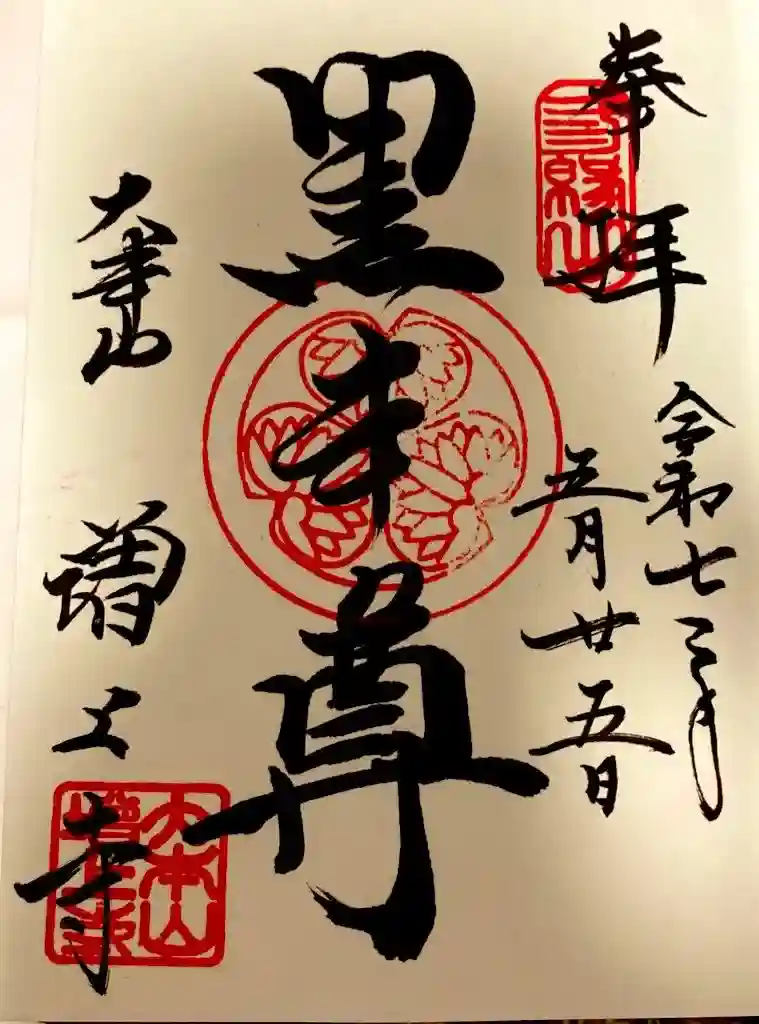 奉拝
令和七年
五月廿五日
黒本尊
大本山
増上寺
三縁山
大本山
増上寺